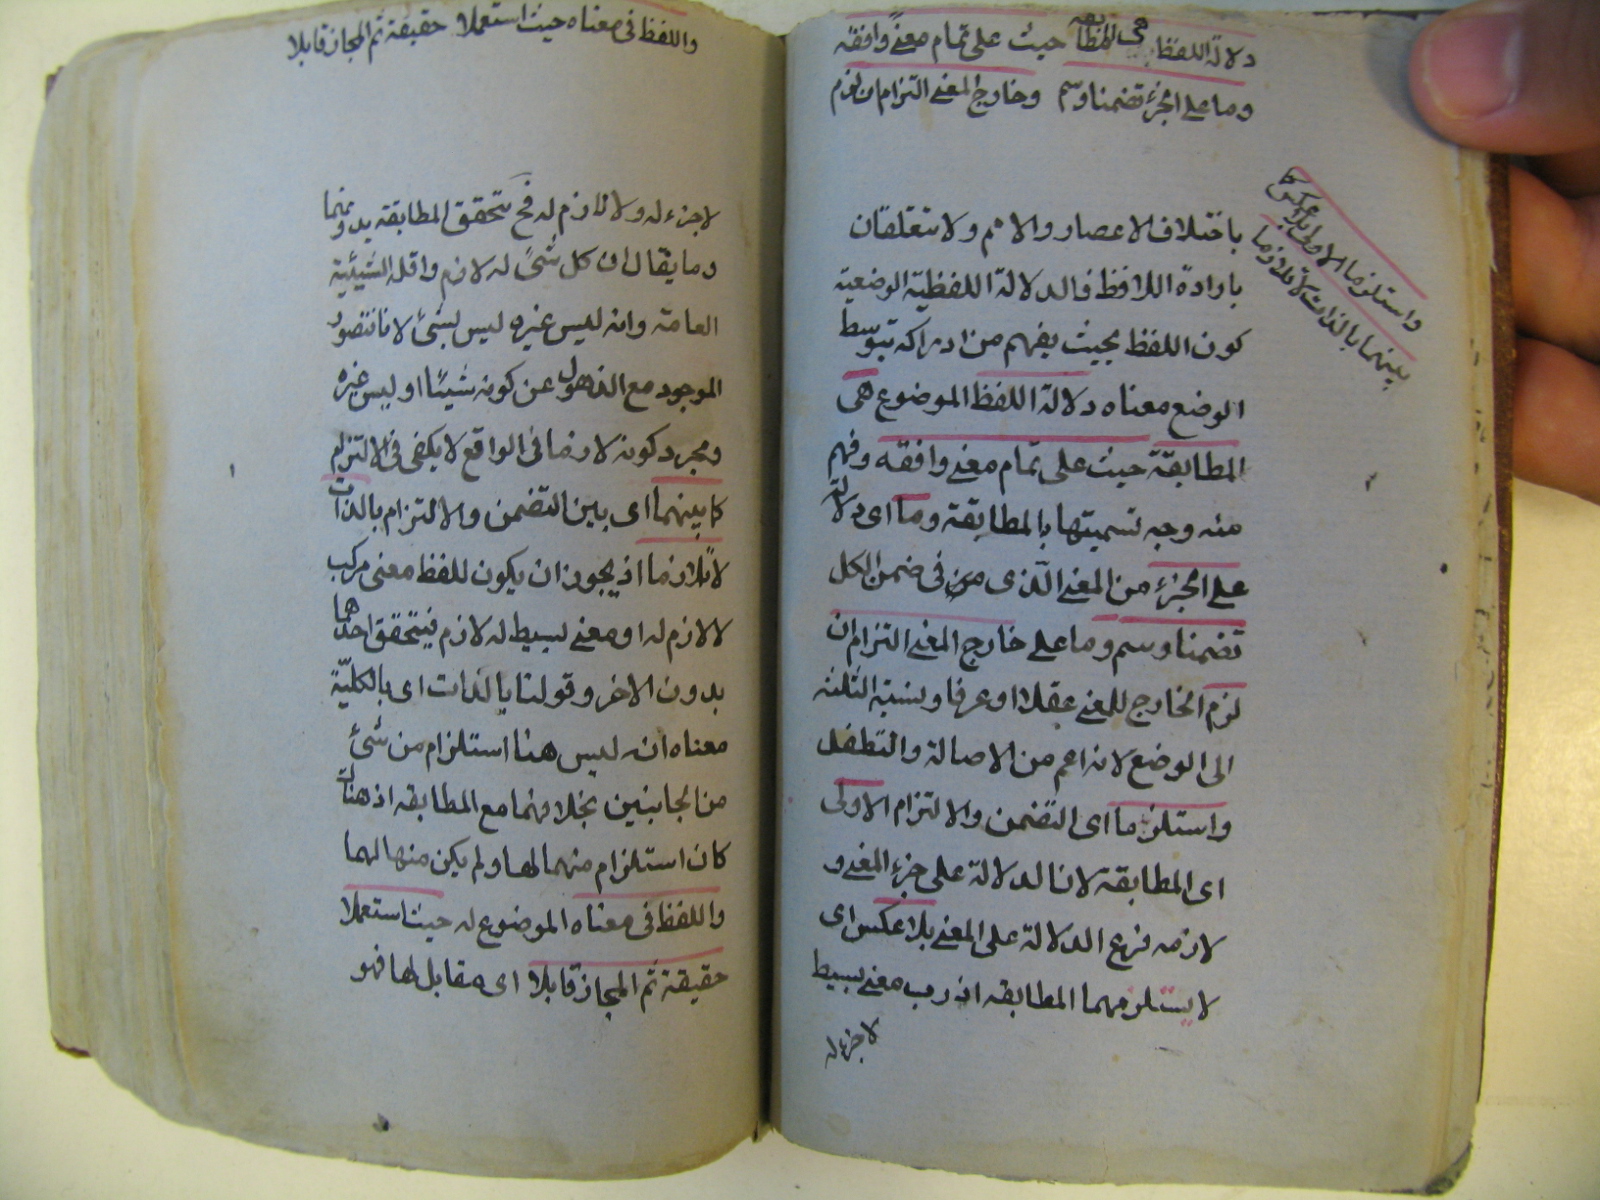 دلالة اللفظ هى المطابقه حيث على تمام معنىً وافقه
وما على الجزء تضمنا وسم وخارج المعنى التزام ان لزم
واستلزما الاولى بلا عكس كما
بينهما بالذات لا تلازما
باختلاف الاعصار والامم ولا تتعلقان
بارادة اللافظ فالدلالة اللفظية الوضعية
كون اللفظ بحيث يفهم من ادراكه بتوسط
الوضع معناه دلالة اللفظ الموضوع هى
المطابقة حيث على تمام معنى وافقه وفهم
منه وجه تسميتها بالمطابقة وما اى دلالة
على الجزء من المعنى الذى فى ضمن الكل
تضمنا وسم وما على خارج المعنى التزام ان
لزم الخارج للمعنى عقلا او عرفا ونسبة الثلثة
الى الوضع لانه اعم من الاصالة والتطفل
واستلزما اى التضمن والالتزام الاولى
اى المطابقة لان الدلالة على جزء المعنى و
لازمه فرع الدلالة على المعنى بلا عكس اى
لا يستلزمهما المطابقه اذ رب معنى بسيط
لا جزء له
واللفظ فى معناه حيث استعملا حقيقة ثم المجاز قابلا
لا جزء له ولا لازم له فح تتحقق المطابقة بدونهما
وما يقال ان كل شىً له لازم واقله الشيئية
العامة وانه ليس غيره ليس بشئ لانا نتصور
الموجود مع الذهول عن كونه شيئا او ليس غيره
ومجرد كونه لازما فى الواقع لا يكفى فى الالتزام
كما بينهما اى بين التضمن والالتزام بالذات
لا تلازما اذ يجوز ان يكون للفظ معنى مركب
لا لازم له او معنى بسيط له لازم فيتحقق احدهما
بدون الاخر وقولنا بالذات اى بالكليّة
معناه انه ليس هنا استلزام من شئ
من الجانبين بخلافهما مع المطابقه اذ هناك
كان استلزام منهما لها ولم يكن منها لهما
واللفظ فى معناه الموضوع له حيث استعملا
حقيقة ثم المجاز قابلا اى مقابل لها فهو